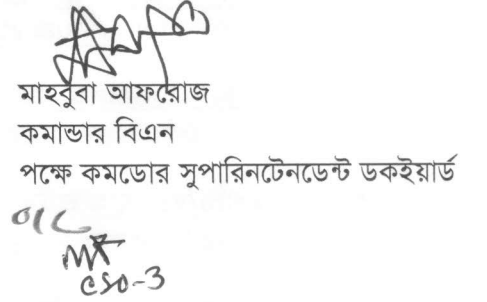 মাহবুবা আফরোজ
কমান্ডার বিএন
পক্ষে কমডোর সুপারিনটেনডেন্ট ডকইয়ার্ড
O/C
CSO-3